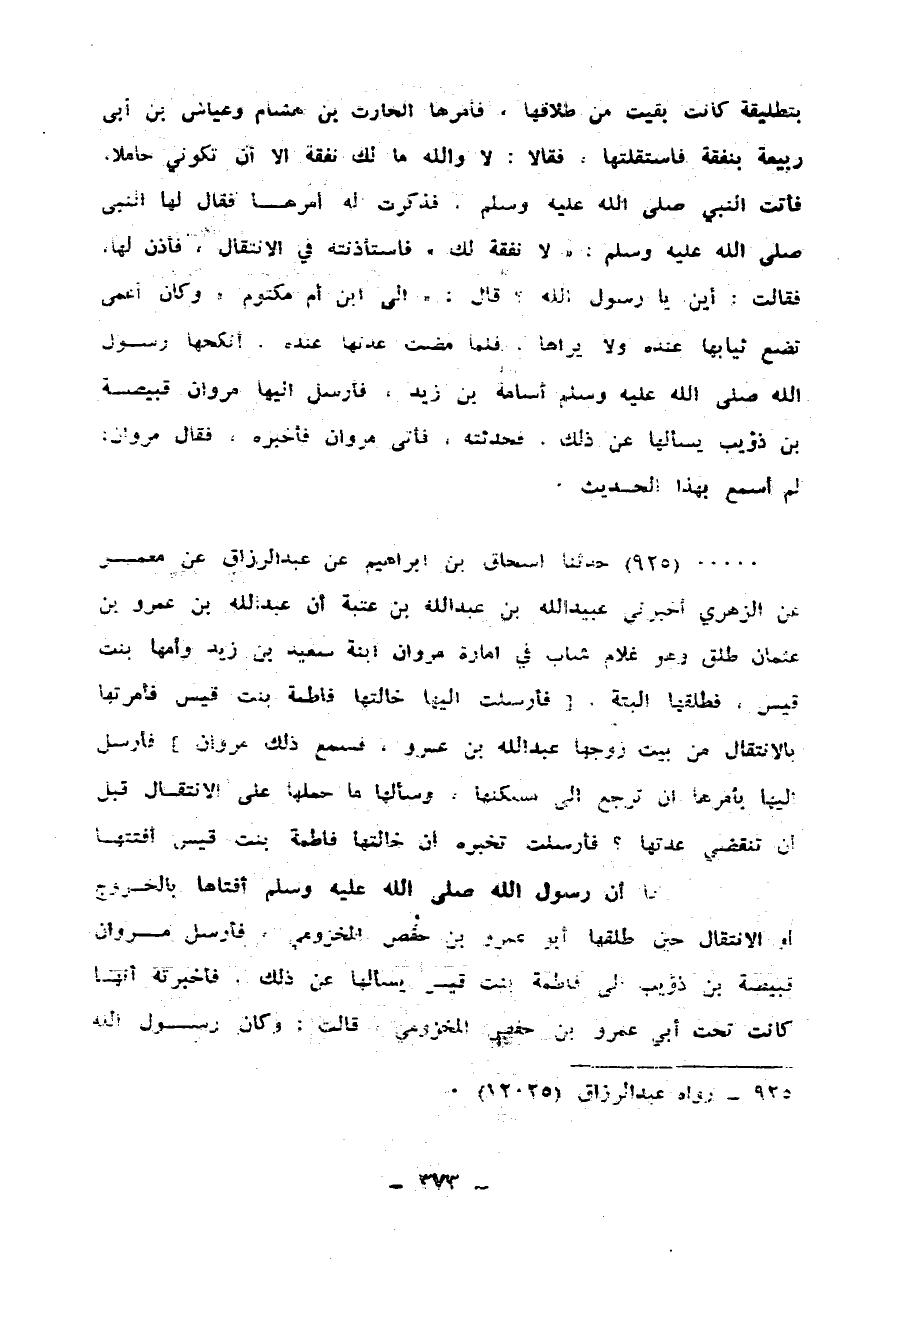 بتطليقة كانت بقيت من طلاقها ، فأمرها الحارث بن هشام وعياش بن أبى
ربيعة بنفقة فاستقلتها ، فقالا : لا والله ما لك نفقة الا أن تكوني حاملا،
فأتت النبي صلى الله عليه وسلم ، فذكرت له أمرهــا فقال لها النبى
صلى الله عليه وسلم : « لا نفقة لك » فاستأذنته في الانتقال ، فأذن لها،
فقالت : أين يا رسول الله ؟ قال : « الى ابن أم مكتوم » وكان أعمى
تضع ثيابها عنده ولا يراها . فلما مضت عدتها عنده . أنكحها رســول
الله صلى الله عليه وسلم أسامة بن زيد ، فأرسل اليها مروان قبيصــة
بن ذؤيب يسألها عن ذلك . فحدثته ، فأتى مروان فأخبره ، فقال مروان:
لم أسمع بهذا الحـديث .
..... (٩٢٥) حدثنا اسحاق بن ابراهيم عن عبدالرزاق عن معمــر
عن الزهري أخبرني عبيدالله بن عبدالله بن عتبة أن عبدالله بن عمرو بن
عثمان طلق وهو غلام شاب في امارة مروان ابنة سعيد بن زيد وأمها بنت
قيس ، فطلقها البتة . [ فأرسلت اليها خالتها فاطمة بنت قيس فأمرتها
بالانتقال من بيت زوجها عبدالله بن عمرو ، فسمع ذلك مروان ] فأرسل
اليها يأمرها ان ترجع الى مسكنها ، وسألها ما حملها على الانتقـال قبل
أن تنقضي عدتها ؟ فأرسلت تخبره أن خالتها فاطمة بنت قيس أفتتهــا
أن رسول الله صلى الله عليه وسلم أفتاها بالخــروج
أو الانتقال حين طلقها أبو عمرو بن حفص المخزومي ، فأرسل مــروان
قبيصة بن ذؤيب الى فاطمة بنت قيس يسألها عن ذلك . فأخبرته أنهــا
كانت تحت أبي عمرو بن حفص المخزومي ، قالت : وكان رســول الله
٩٢٥ ــ رواه عبدالرزاق (١٢٠٢٥) .
ــ ٣٧٣ ــ